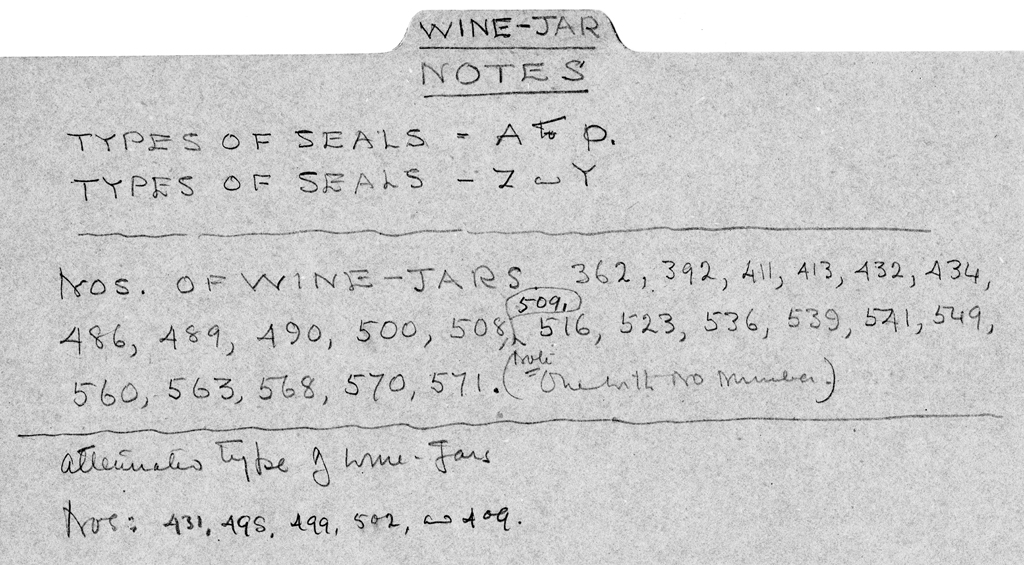 WINE-JAR
NOTES
TYPES OF SEALS = A to P.
TYPES OF SEALS - Z & Y
NOS. OF WINE-JARS 362, 392, 411, 413, 432, 434,
486, 489, 490, 500, 508, 509, 516, 523, 536, 539, 541, 549,
560, 563, 568, 570, 571. (Note One with no number.)
attenuated type of wine-Jars
Nos: 431, 495, 499, 502, & 409.